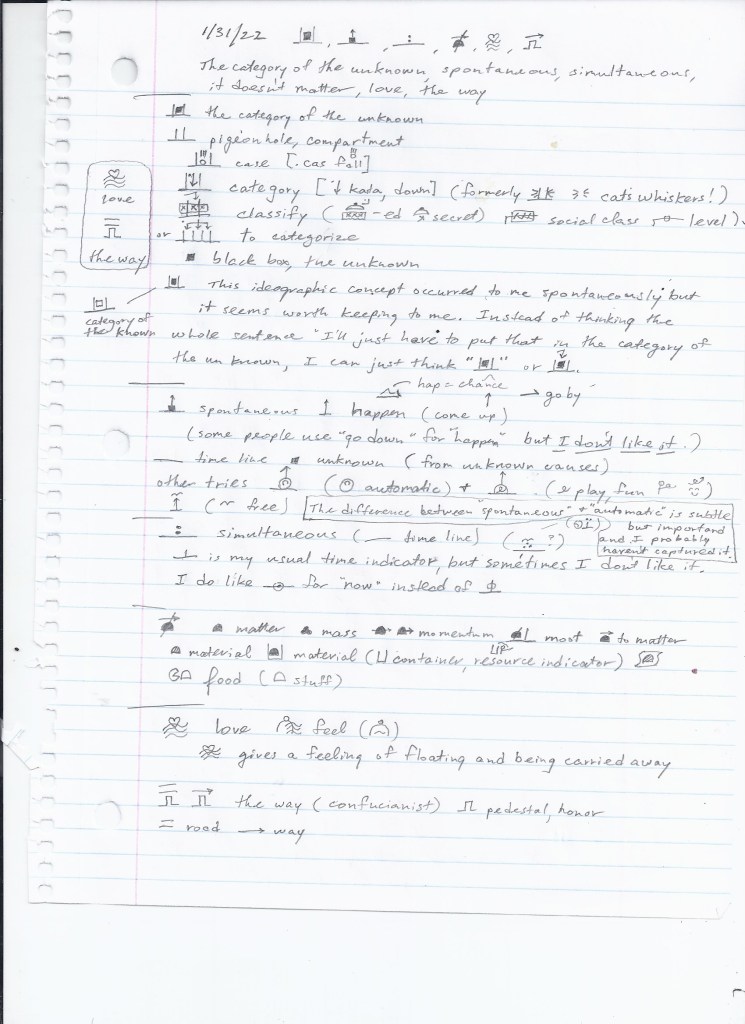 1/31/22
The category of the unknown, spontaneous, simultaneous,
it doesn't matter, love, the way
the category of the unknown
pigeonhole, compartment
case [.cas fall]
category [kada, down] (formerly cat's whiskers!)
classify ( -ed secret) social class level)
or to categorize
black box, the unknown
love
the way
This ideographic concept occurred to me spontaneously but
it seems worth keeping to me. Instead of thinking the
category of
the known
whole sentence "I'll just have to put that in the category of
the unknown, I can just think " " or
hap = chance
→ go by
spontaneous happen (come up)
(some people use "go down" for "happen" but I don't like it.)
time line unknown (from unknown causes)
other tries ( automatic) + . ( play, fun )
(~ free) The difference between "spontaneous" + "automatic" is subtle
but important
and I probably
haven't captured it.
simultaneous ( — time line) ( ?)
is my usual time indicator, but sometimes I don't like it.
I do like for "now" instead of
matter mass momentum most to matter
material material ( container, resource indicator)
food ( stuff)
love feel ( )
gives a feeling of floating and being carried away
the way (confucianist) pedestal, honor
= road → way